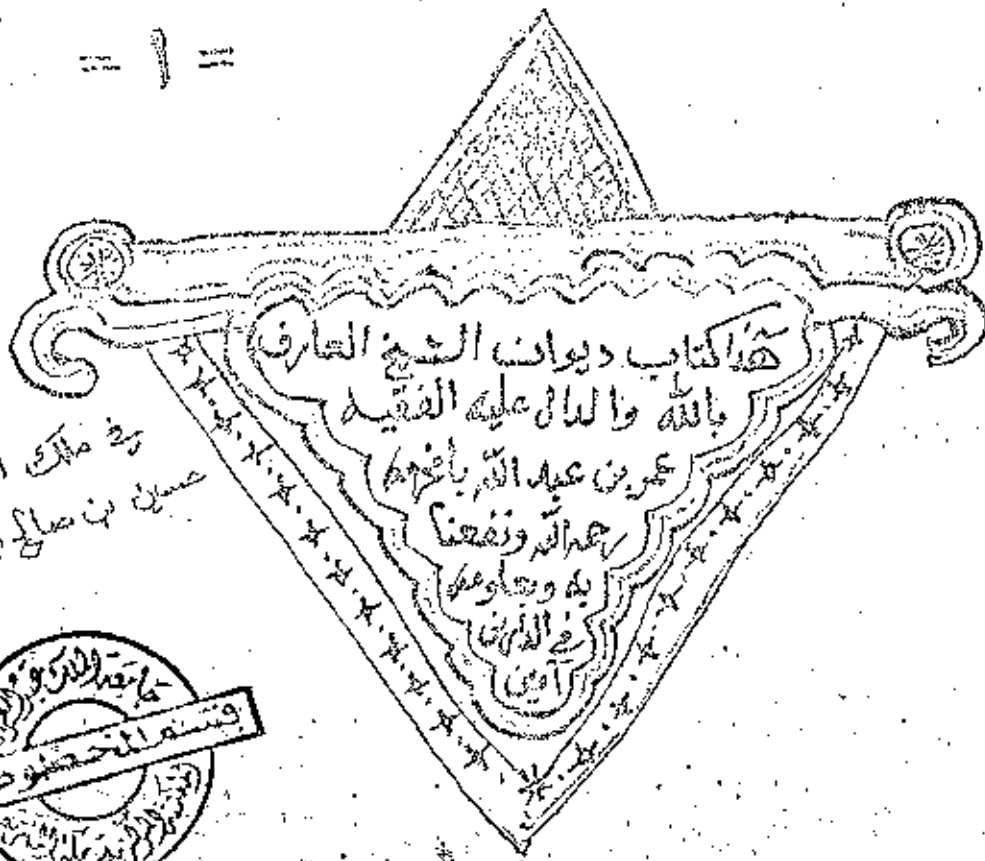 = ١ =
هذا كتاب ديوان الشيخ العارف
بالله والدال عليه الفقيه
عمر بن عبد الله بامخرمة
رحمه الله ونفعنا
به وبعلومه
في الدارين
آمين
في ملك
حسين بن صالح
جامعة الملك
قسم المخطو